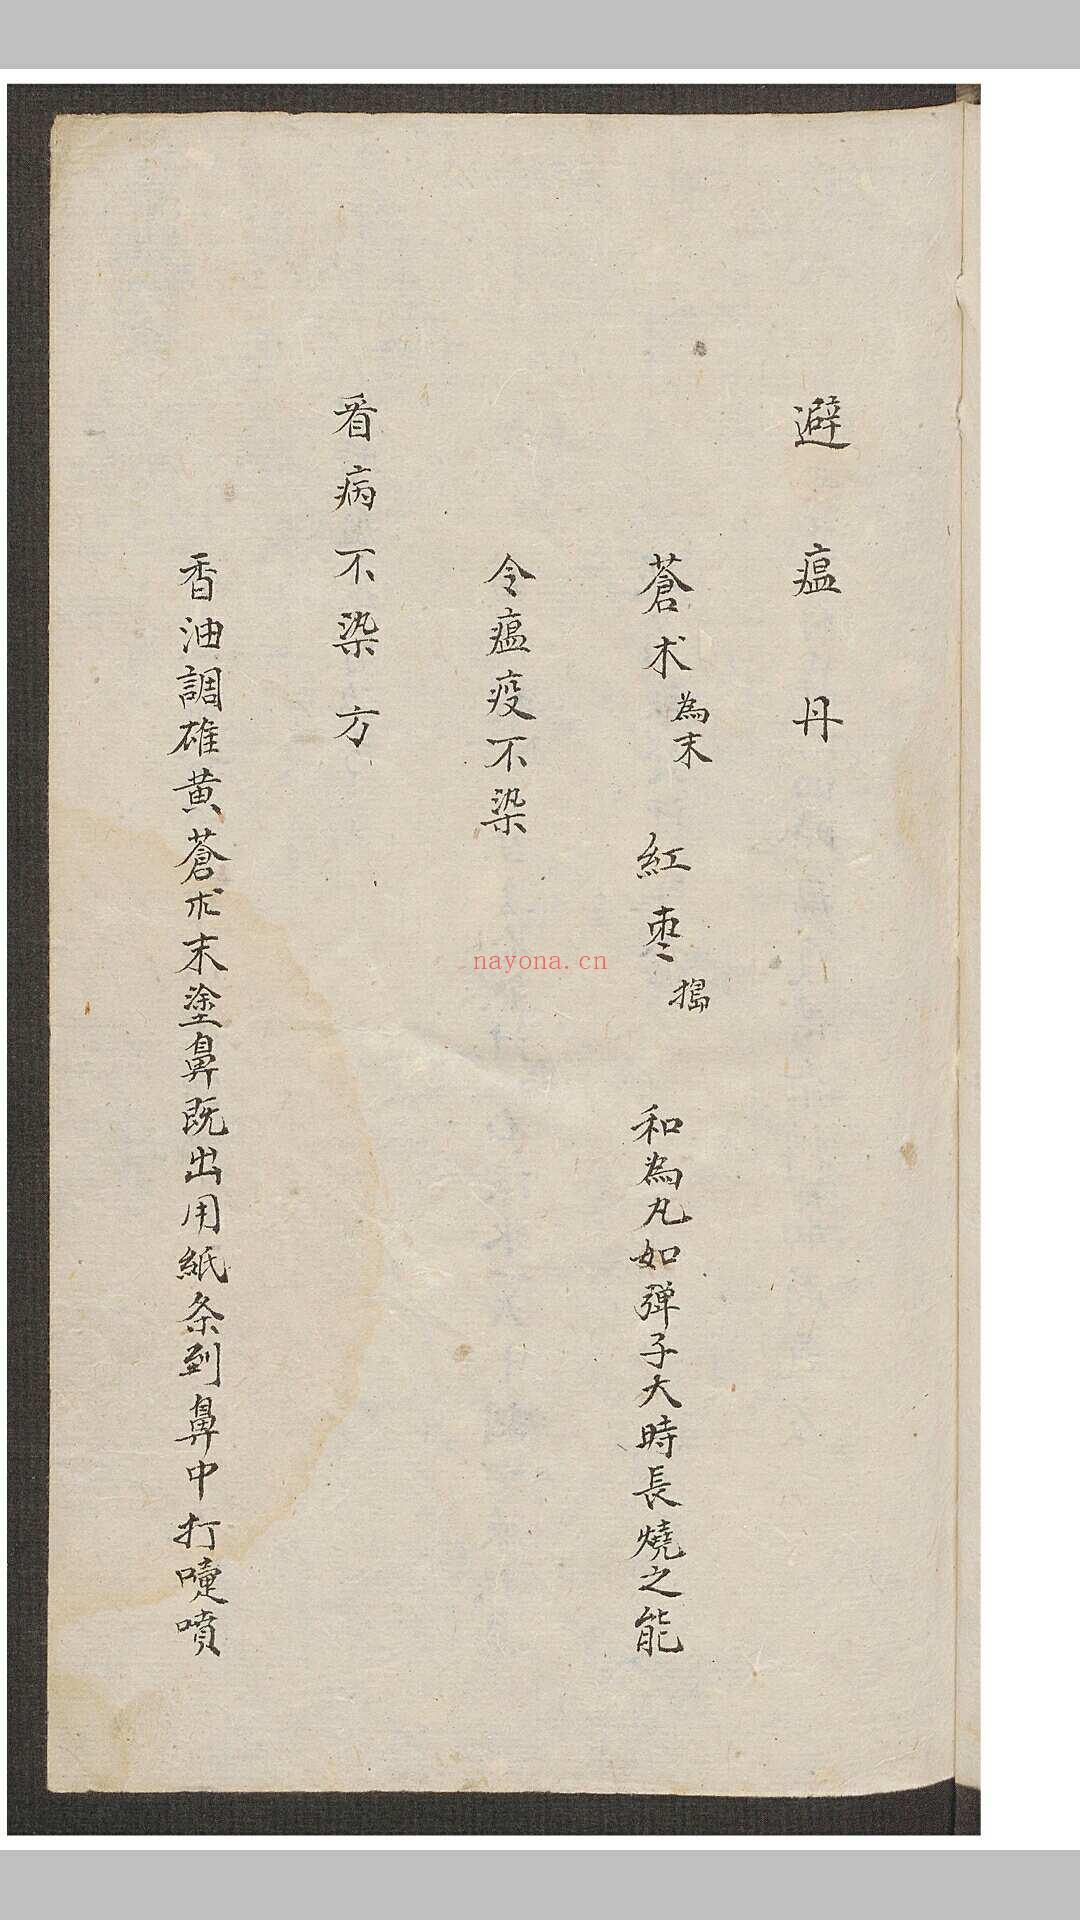 避瘟丹
蒼术為末 紅枣搗 和為丸如彈子大時長燒之能
令瘟疫不染
看病不染方
香油調雄黄蒼术末塗鼻既出用紙条到鼻中打嚏噴
nayona.cn